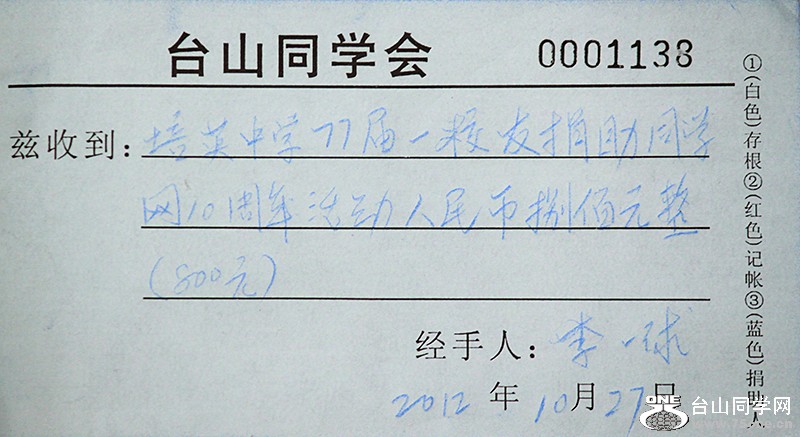 台山同学会 0001138
兹收到：培英中学77届一校友捐助同学
网10周年活动人民币捌佰元整
（800元）
经手人：李一球
2012年10月27日
①(白色)存根②(红色)记帐③(蓝色)捐助人
ONE
台山同学网